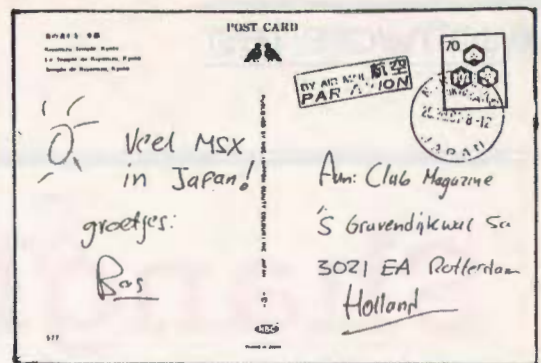 POST CARD
Kiyomizu Temple Kyoto
Le Temple de Kiyomizu, Kyoto
Temple de Kiyomizu, Kyoto
BY AIR MAIL 航空
PAR AVION
70
JAPAN
Veel MSX
in Japan!
groetjes:
Bas
Aan: Club Magazine
'S Gravendijkwal 5a
3021 EA Rotterdam
Holland
NBC
PRINTED IN JAPAN